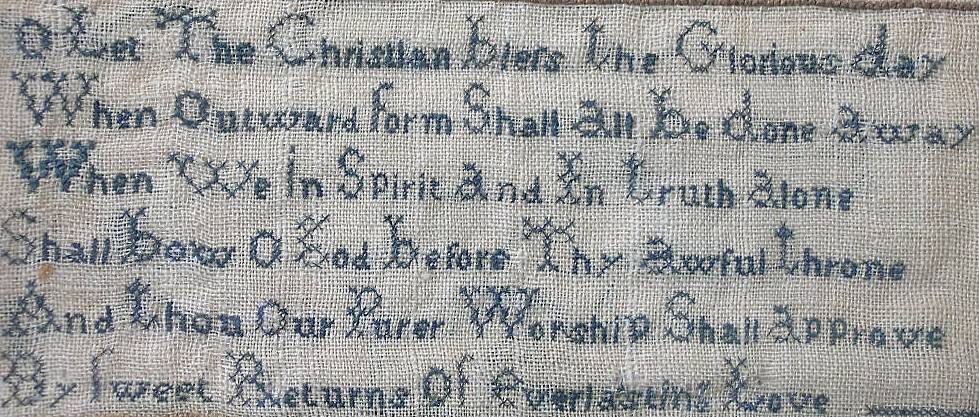 O Let The Christian bless the Glorious day
When Outward form Shall all be done away
When We in Spirit and In truth alone
Shall bow O God before Thy awful throne
And thou Our Purer Worship Shall approve
By sweet Returns Of everlasting Love